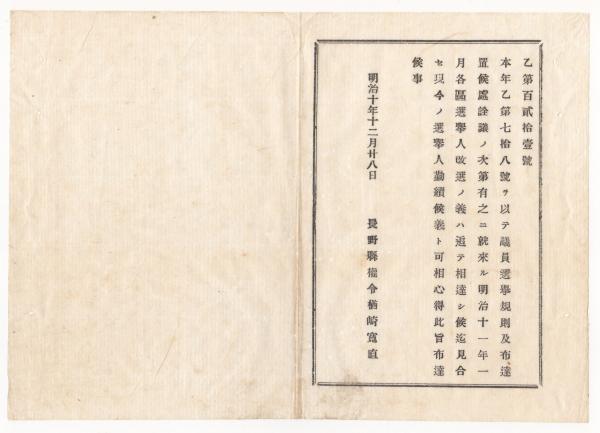 乙第百貳拾壹號
本年乙第七拾八號ヲ以テ議員選擧規則及布達
置候處詮議ノ次第有之ニ就來ル明治十一年一
月各區選擧人改選ノ義ハ追テ相達シ候迄見合
セ現今ノ選擧人勤續候義ト可相心得此旨布達
候事
明治十年十二月廿八日
長野縣權令楢崎寬直